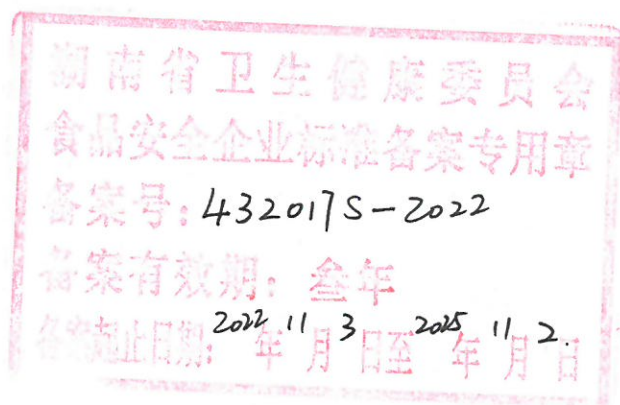 湖南省卫生健康委员会
食品安全企业标准备案专用章
备案号:432017S-2022
备案有效期:叁年
备案起止日期:2022年11月3日至2025年11月2日